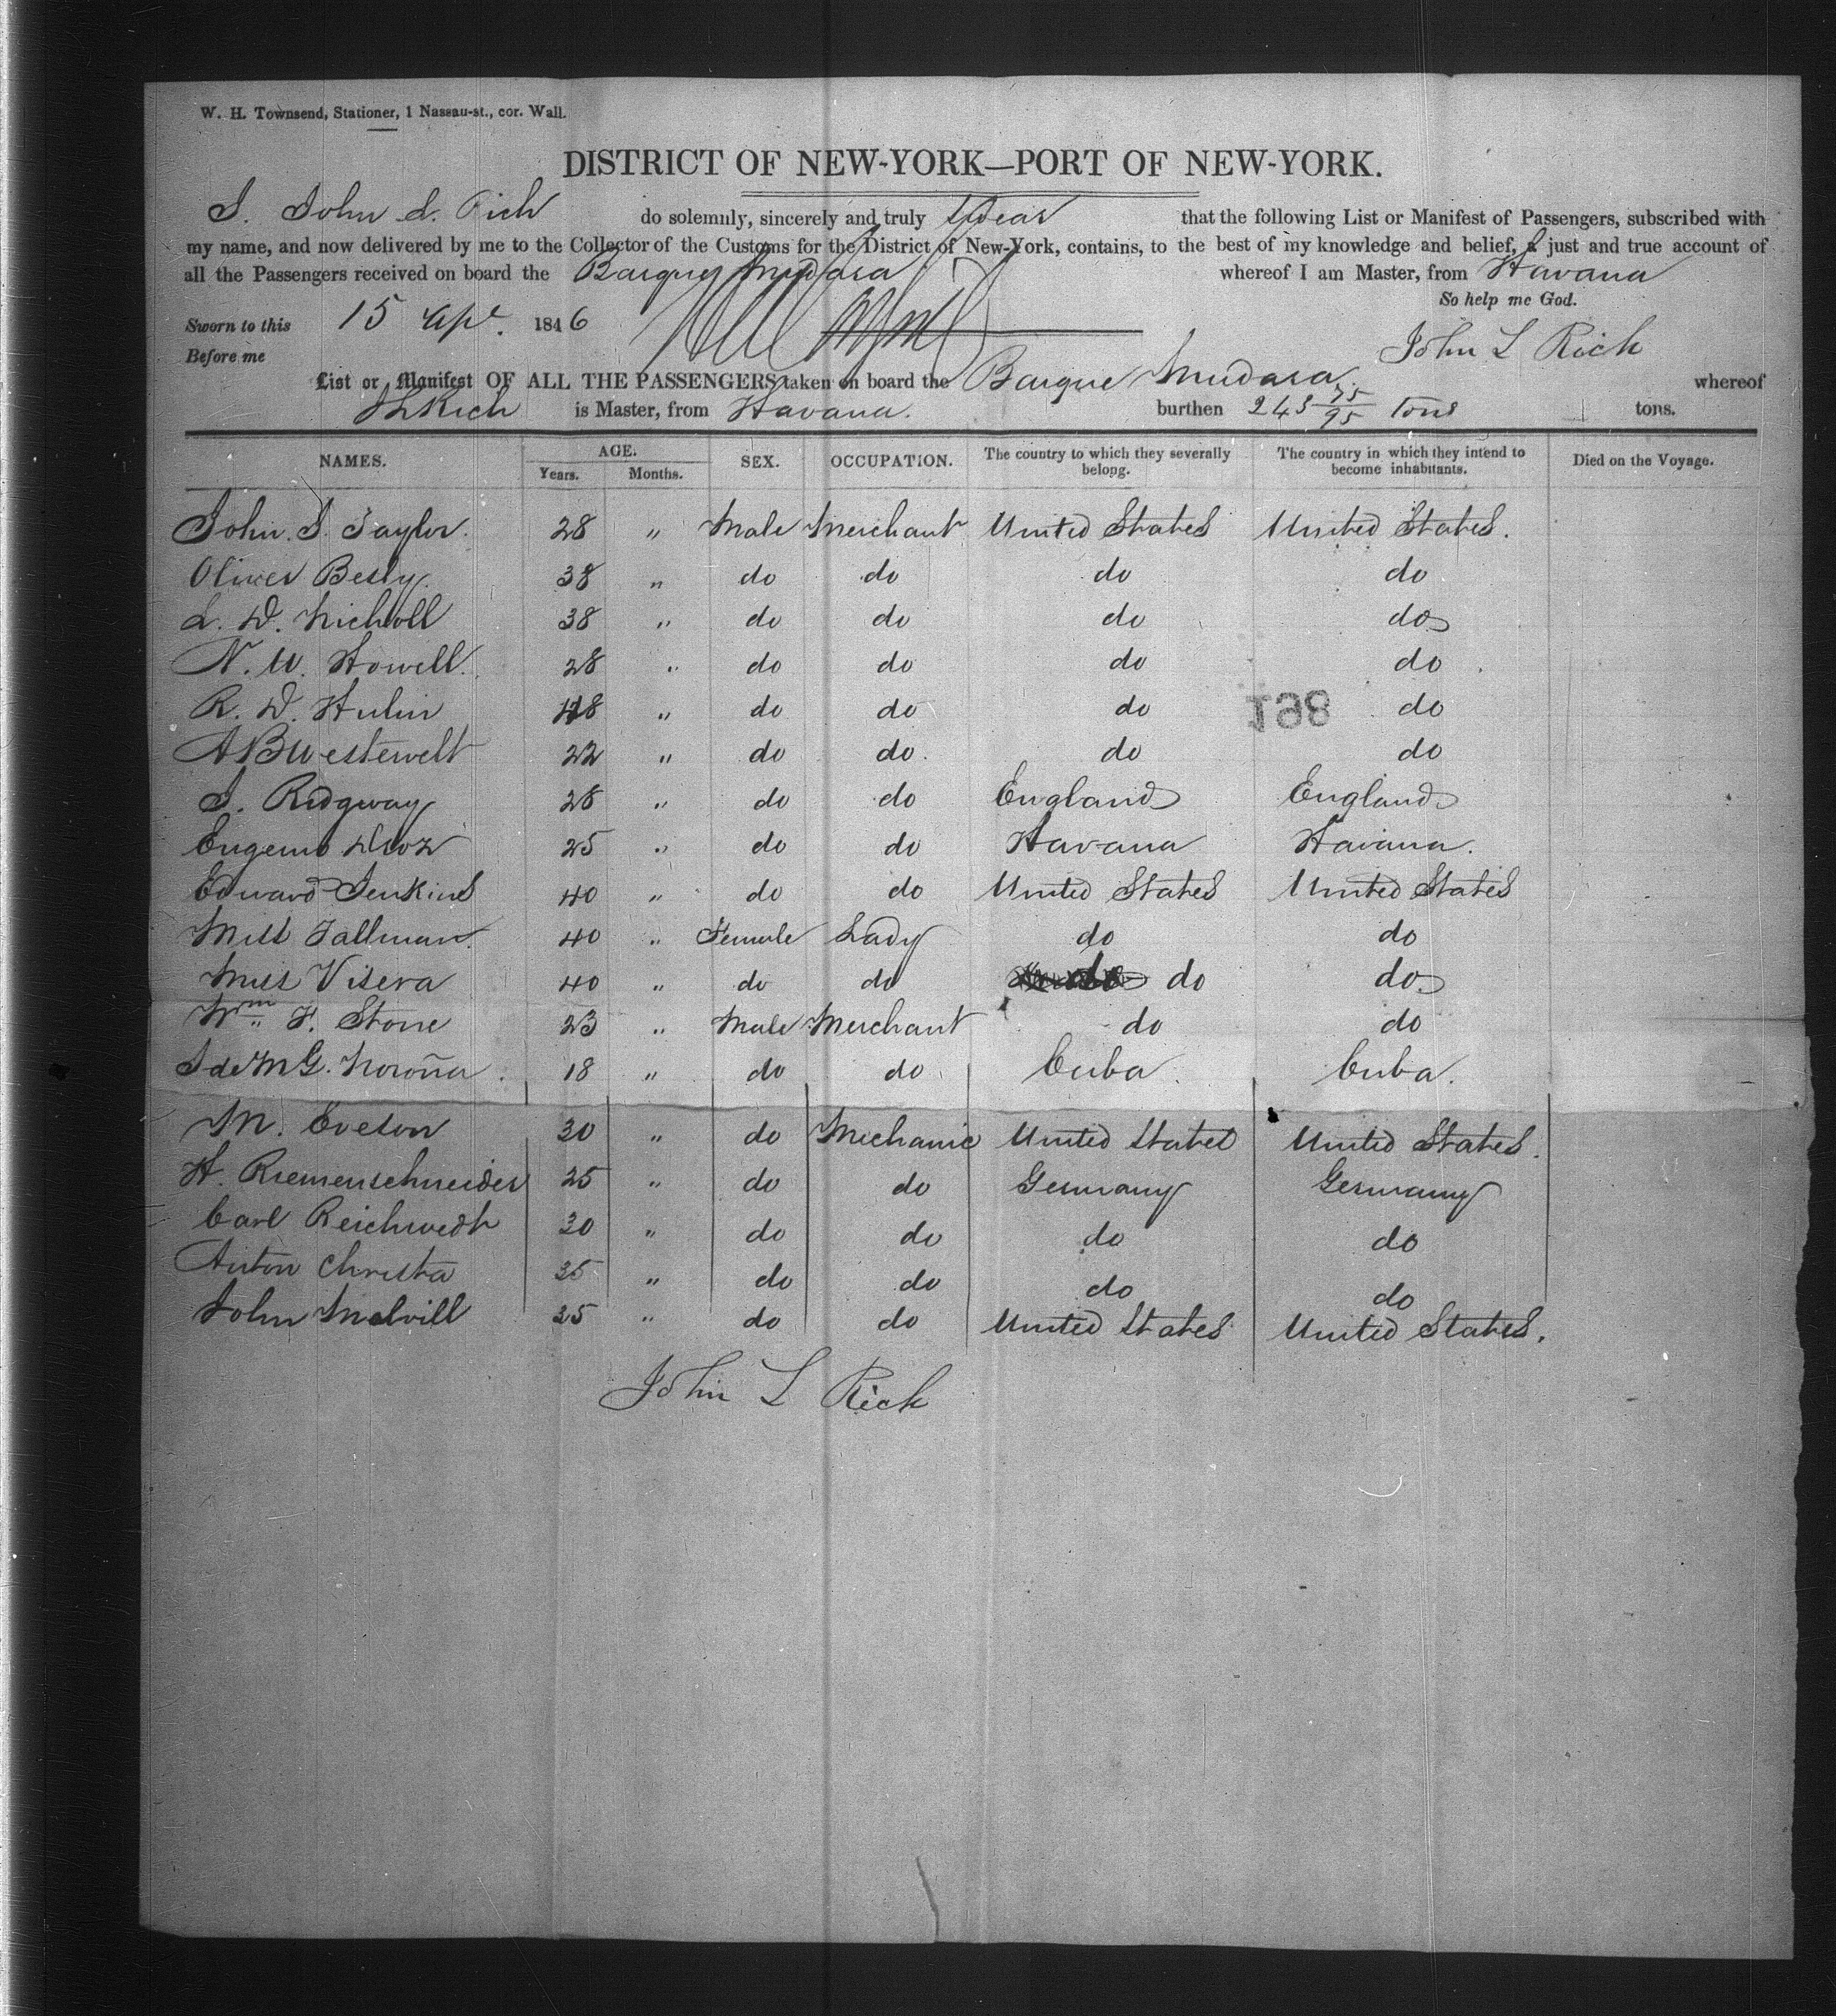 W. H. Townsend, Stationer, 1 Nassau-st., cor. Wall.
DISTRICT OF NEW-YORK—PORT OF NEW-YORK.
I. John L. Rich do solemnly, sincerely and truly Swear that the following List or Manifest of Passengers, subscribed with
my name, and now delivered by me to the Collector of the Customs for the District of New-York, contains, to the best of my knowledge and belief, a just and true account of
all the Passengers received on board the Barque whereof I am Master, from Havana
So help me God.
Sworn to this 15 Apl. 1846
John L Rich
Before me
List or Manifest OF ALL THE PASSENGERS taken on board the Barque whereof
J L Rich is Master, from Havana. burthen 243 75/95 tons tons.
NAMES. AGE. Years. Months. SEX. OCCUPATION. The country to which they severally belong. The country in which they intend to become inhabitants. Died on the Voyage.
John. J. Taylor. 28 " Male Merchant United States United States.
Oliver 38 " do do do do
L. D. Nicholl 38 " do do do do
N. W. Howell. 28 " do do do do
R. D. Hulin 48 " do do do do
198
A B Westervelt 22 " do do. do do
J. Ridgway 28 " do do England England
Eugenio 25 " do do Havana Havana.
Edward Jenkins 40 " do do United States United States
Miss Tallman. 40 " Female Lady do do
Miss Visera 40 " do do do do
Wm. F. Stone 23 " Male Merchant do do
J de M G. Noroña. 18 " do do Cuba. Cuba.
M. Eveson 30 " do Mechanic United States United States.
H. Riemenschneider 25 " do do Germany Germany
Carl 30 " do do do do
Anton Christa 35 " do do do do
John Melvill 35 " do do United States United States.
John L Rich